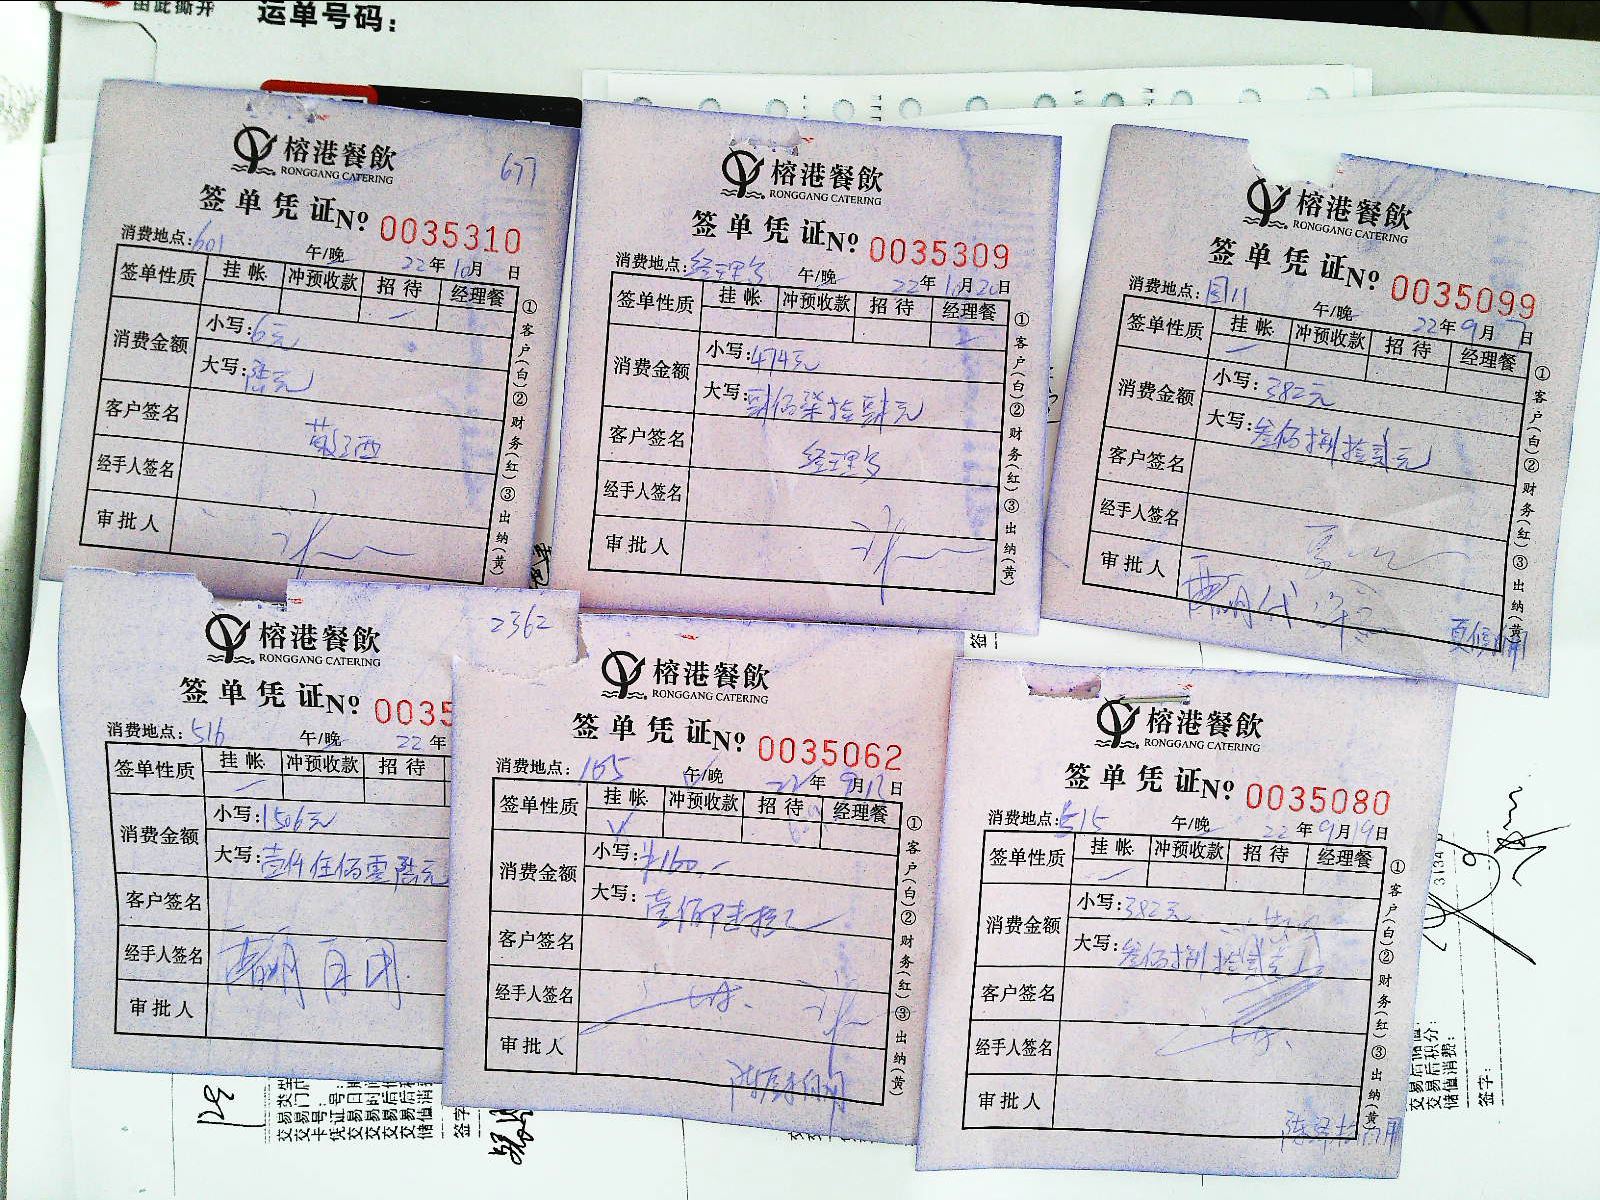 由此撕开
运单号码:
榕港餐飲
RONGGANG CATERING
677
签单凭证 Nº 0035310
消费地点: 601 午/晚 22年10月 日
签单性质 挂帐 冲预收款 招待 经理餐
消费金额 小写: 6元
大写: 陆元
客户签名
经手人签名
审批人
①客户(白)②财务(红)③出纳(黄)
榕港餐飲
RONGGANG CATERING
签单凭证 Nº 0035309
消费地点: 经理餐 午/晚 22年10月20日
签单性质 挂帐 冲预收款 招待 经理餐
消费金额 小写: 474元
大写: 肆佰柒拾肆元
客户签名 经理餐
经手人签名
审批人
①客户(白)②财务(红)③出纳(黄)
榕港餐飲
RONGGANG CATERING
签单凭证 Nº 0035099
消费地点: 午/晚 22年9月 日
签单性质 挂帐 冲预收款 招待 经理餐
消费金额 小写: 382元
大写: 叁佰捌拾贰元
客户签名
经手人签名
审批人
①客户(白)②财务(红)③出纳(黄)
榕港餐飲
RONGGANG CATERING
2362
签单凭证 Nº 0035
消费地点: 516 午/晚 22年
签单性质 挂帐 冲预收款 招待
消费金额 小写: 1506元
大写: 壹仟伍佰零陆元
客户签名
经手人签名
审批人
榕港餐飲
RONGGANG CATERING
签单凭证 Nº 0035062
消费地点: 165 午/晚 22年9月12日
签单性质 挂帐 冲预收款 招待 经理餐
消费金额 小写: ¥160.-
大写: 壹佰陆拾元
客户签名
经手人签名
审批人
①客户(白)②财务(红)③出纳(黄)
榕港餐飲
RONGGANG CATERING
签单凭证 Nº 0035080
消费地点: 515 午/晚 22年9月19日
签单性质 挂帐 冲预收款 招待 经理餐
消费金额 小写: 382元
大写: 叁佰捌拾贰元
客户签名
经手人签名
审批人
①客户(白)②财务(红)③出纳(黄)
3134
交易后积分:
储值消费:
签字: